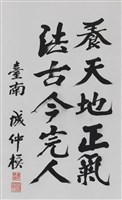 養天地正氣
法古今完人
臺南 成仲模